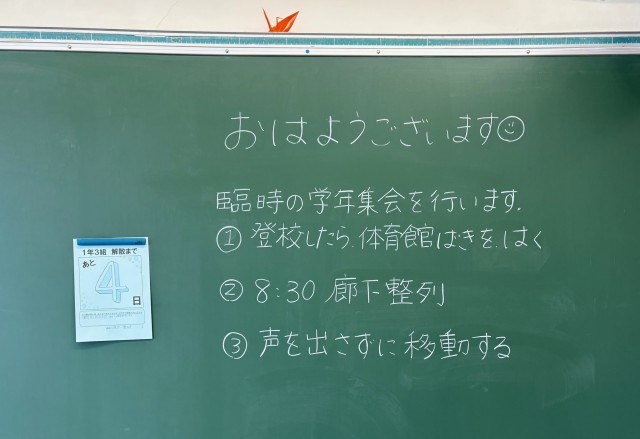 おはようございます
臨時の学年集会を行います.
① 登校したら、体育館ばきを、はく
② 8:30 廊下整列
③ 声を出さずに移動する
1年3組 解散まで
あと
4
日